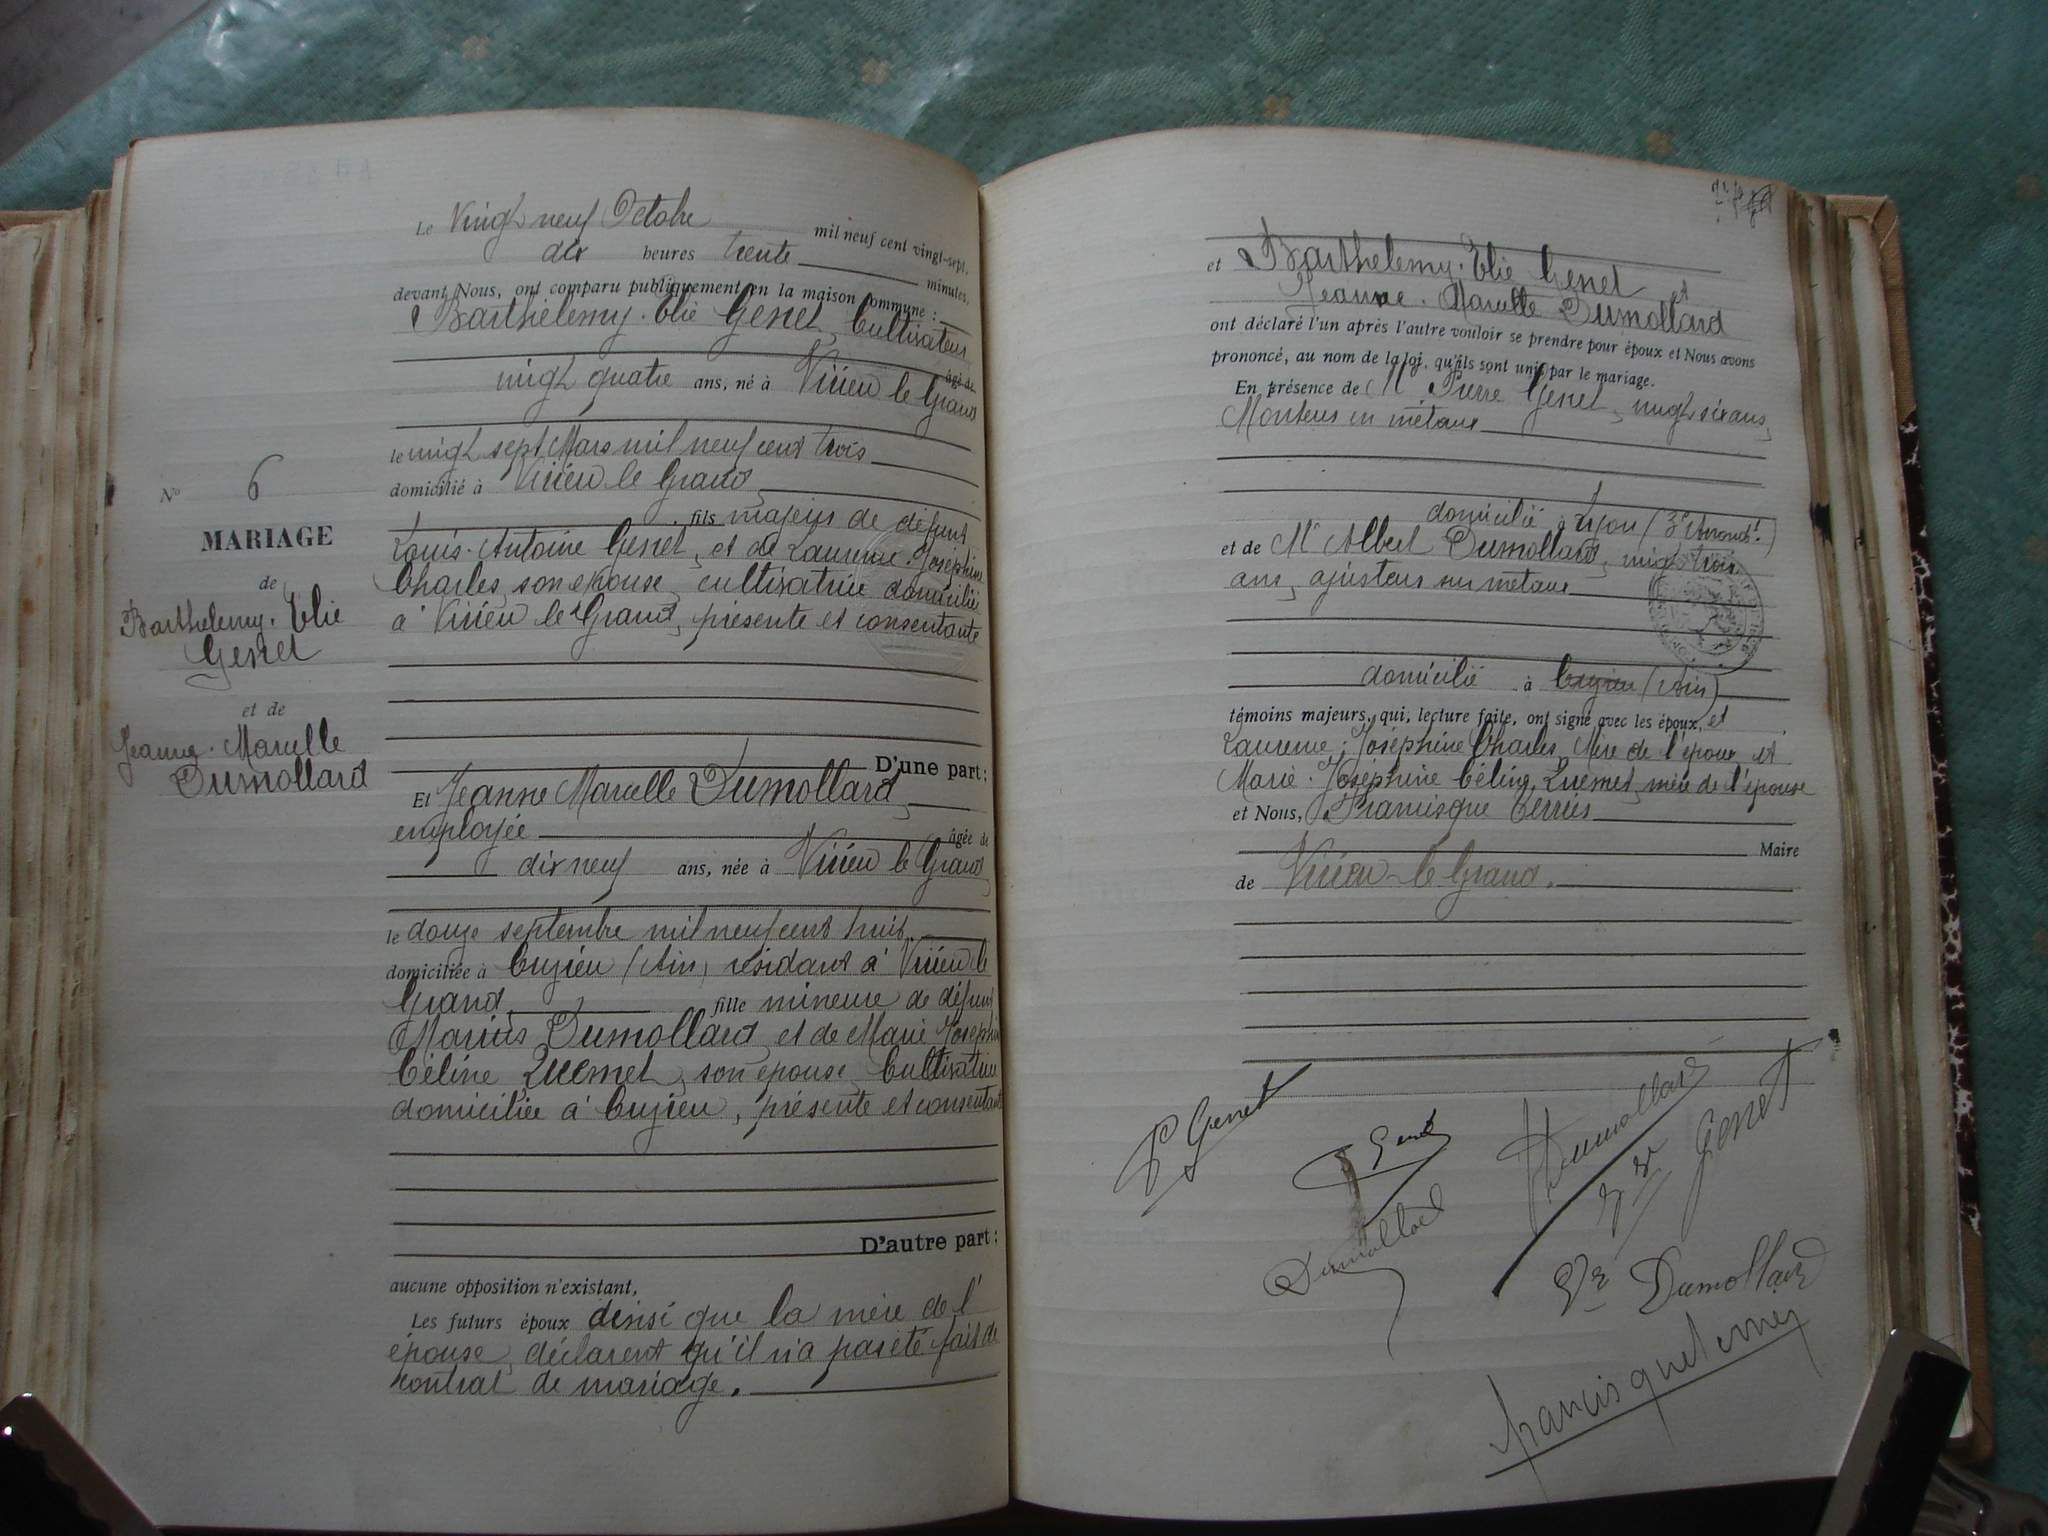 N° 6
MARIAGE
de
Barthelemy. Elie
Genet
et de
Jeanne. Marcelle
Dumollard
Le Vingt neuf Octobre mil neuf cent vingt-sept,
dix heures trente minutes,
devant Nous, ont comparu publiquement en la maison commune :
Barthélemy. Elie Genet, Cultivateur
âgé de
vingt quatre ans, né à Virieu le Grand
le vingt sept Mars mil neuf cent trois
domicilié à Virieu le Grand
fils majeur de défunt
Louis. Antoine Genet, et de Laurence. Joséphine
Charles, son épouse, cultivatrice domiciliée
à Virieu le Grand, présente et consentante
D'une part;
Et Jeanne Marcelle Dumollard,
employée âgée de
dix neuf ans, née à Virieu le Grand,
le douze septembre mil neuf cent huit
domiciliée à Cuzieu (Ain) résidant à Virieu le
Grand, fille mineure de défunt
Marius Dumollard, et de Marie Joséphine
Céline Quemet, son épouse, Cultivatrice
domiciliée à Cuzieu, présente et consentante
D'autre part;
aucune opposition n'existant,
Les futurs époux ainsi que la mère de l'
épouse, déclarent qu'il n'a pas été fait de
contrat de mariage.
Barthelemy. Elie Genet
et et
Jeanne. Marcelle Dumollard
ont déclaré l'un après l'autre vouloir se prendre pour époux et Nous avons
prononcé, au nom de la loi, qu'ils sont unis par le mariage.
En présence de Mr Pierre Genet, vingt six ans,
Monteur en métaux
domicilié à Lyon (3e Arrondt)
et de Mr Albert Dumollard, vingt trois
ans, ajusteur sur métaux
domicilié à Cuzieu (Ain)
témoins majeurs, qui, lecture faite, ont signé avec les époux, et
Laurence, Joséphine Charles, Mère de l'époux et
Marie. Joséphine Céline, Quemet, mère de l'épouse
et Nous, Francisque
Maire
de Virieu-le-Grand.
P Genet
Genet
Dumollard
Genet
Dumollard
Ve Dumollard